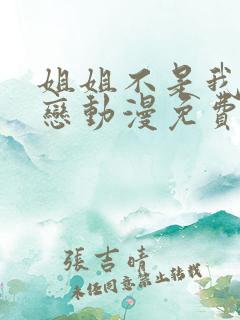 姐姐不是我
戀動漫免費
張吉晴
未経同意禁止轉載